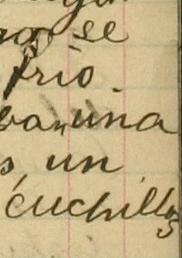 se
frio.
ban una
s, un
cuchillos